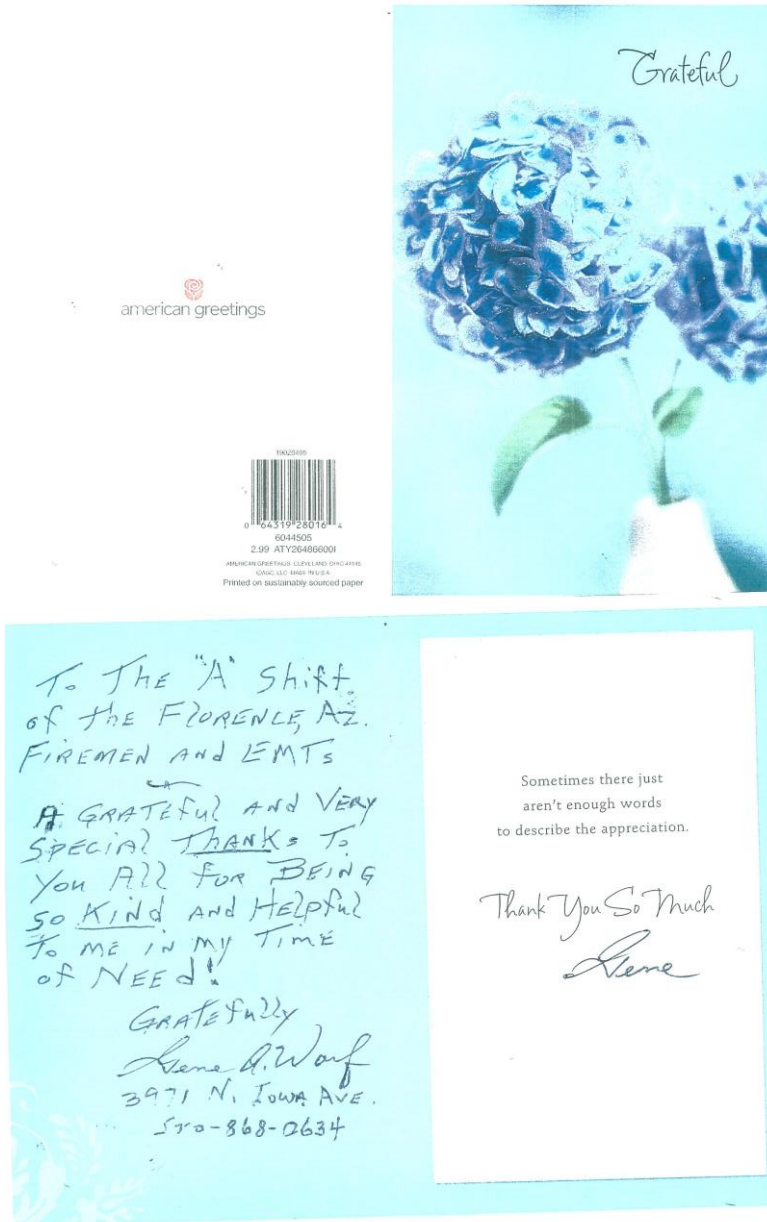 Grateful
american greetings
0 64319 28016 4
6044505
2.99 ATY26486600I
AMERICAN GREETINGS, CLEVELAND, OHIO
Printed on sustainably sourced paper
To THE "A" Shift
of the FlORENCE, Az.
FIREMEN AND EMTs
A GRATEful AND VERY
SPECIAl THANKs To
You All foR BEING
so KINd AND HElpful
To ME IN My TIME
of NEEd!
GRATEfully
Gene A. Worf
3971 N. IOWA AVE.
520-868-0634
Sometimes there just
aren't enough words
to describe the appreciation.
Thank You So Much
Gene